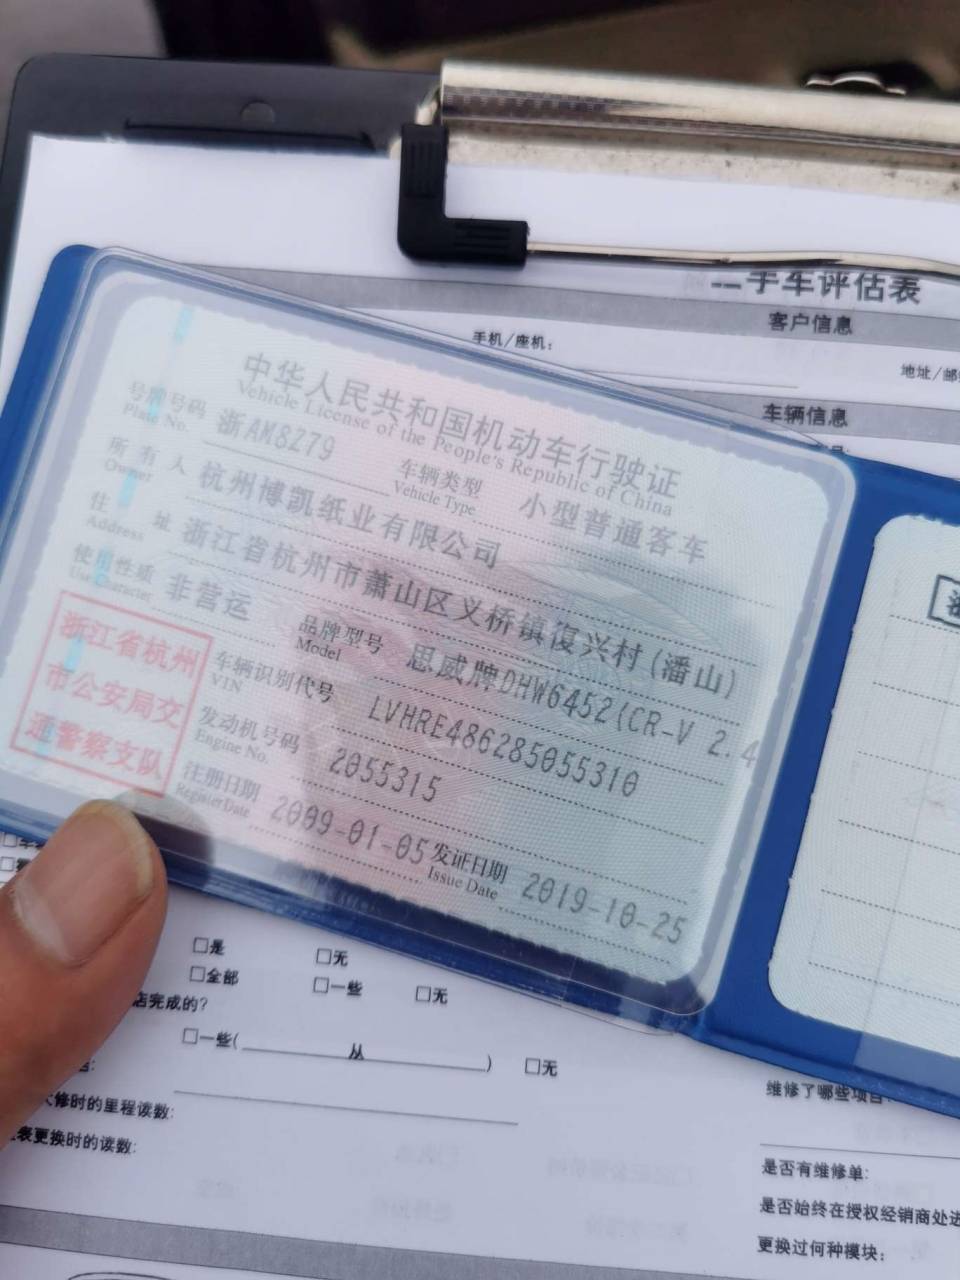 二手车评估表
客户信息
手机/座机：
车辆信息
中华人民共和国机动车行驶证
Vehicle License of the People's Republic of China
号牌号码 浙AM8Z79 车辆类型 小型普通客车
Plate No. Vehicle Type
所有人 杭州博凯纸业有限公司
Owner
住址 浙江省杭州市萧山区义桥镇復兴村(潘山)
Address
使用性质 非营运 品牌型号 思威牌DHW6452(CR-V 2.4
Use Character Model
浙江省杭州
市公安局交
通警察支队
车辆识别代号 LVHRE486285055310
VIN
发动机号码 2055315
Engine No.
注册日期 2009-01-05 发证日期 2019-10-25
Register Date Issue Date
□是 □无
□全部 □一些 □无
店完成的?
□一些( 从 ) □无
修时的里程读数:
表更换时的读数:
维修了哪些项目
是否有维修单:
是否始终在授权经销商处进
更换过何种模块: